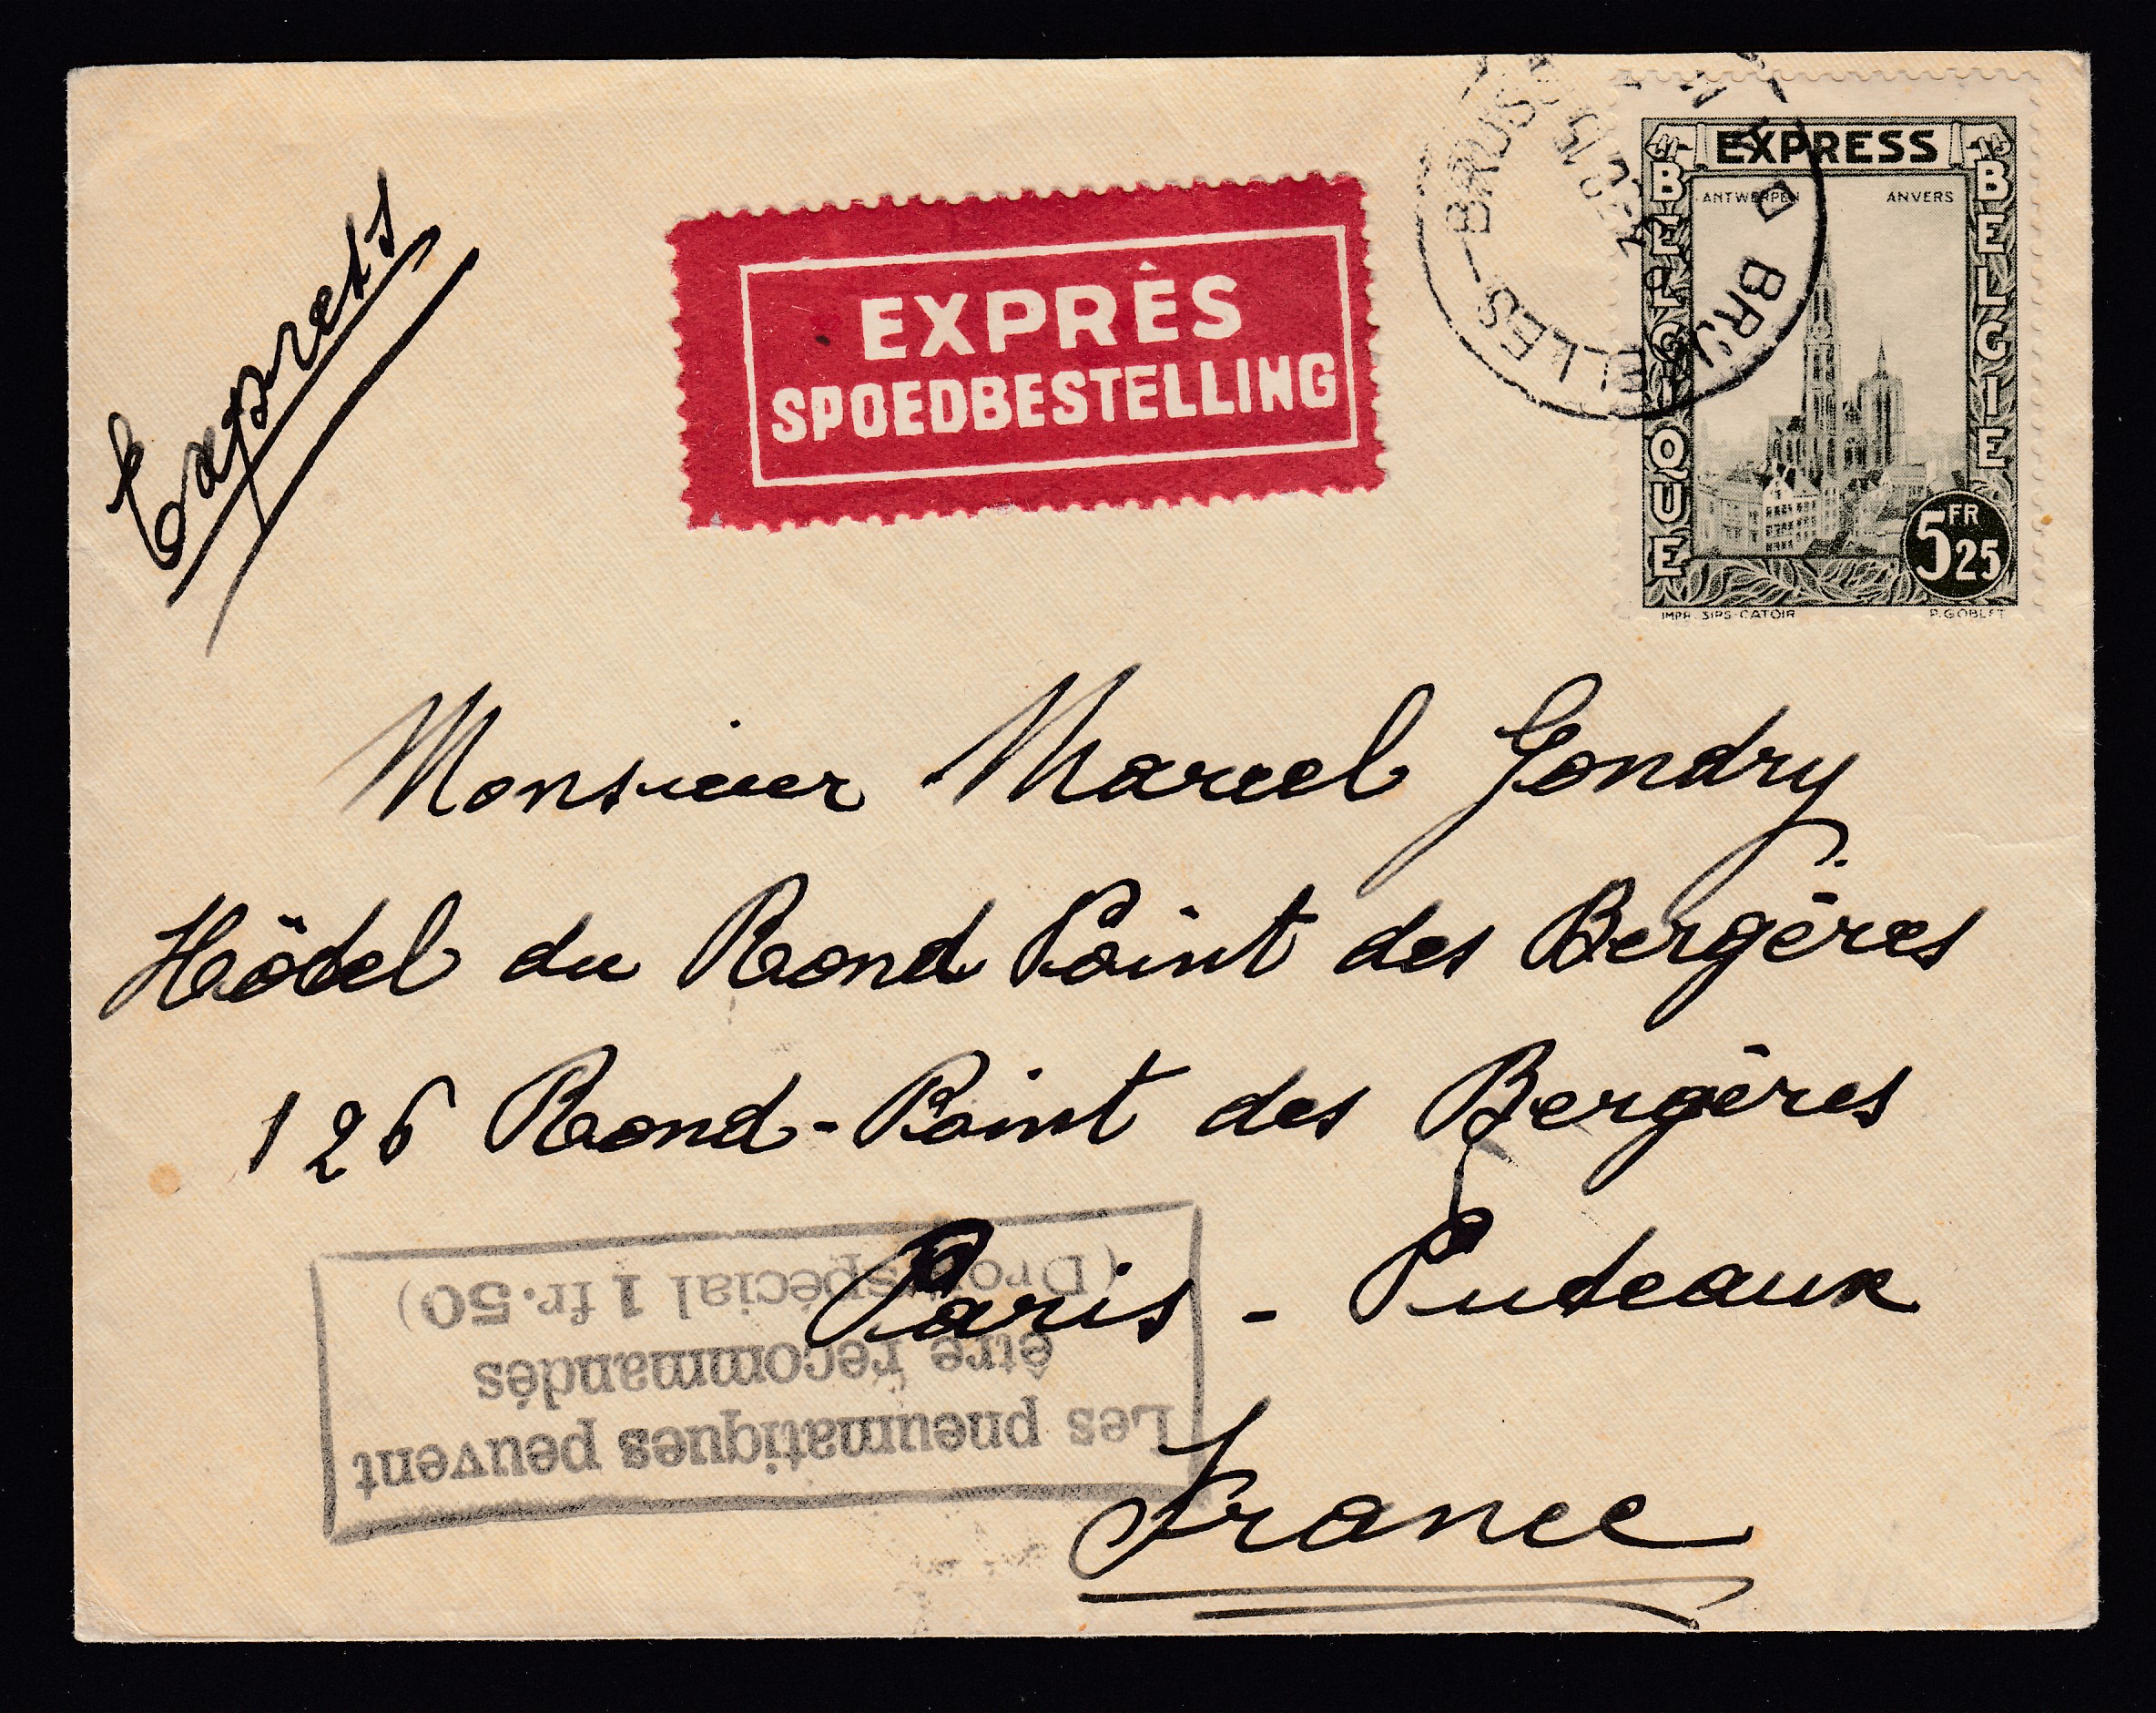 Express
EXPRÈS
SPOEDBESTELLING
EXPRESS
BELGIQUE
BELGIE
ANTWERPEN ANVERS
5 FR 25
IMPR. SIPS-CATOIR P. GOBLET
Monsieur Marcel Gondry
Hôtel du Rond Point des Bergères
126 Rond-Point des Bergères
Paris - Puteaux
France
Les pneumatiques peuvent
être recommandés
(Droit spécial 1 fr. 50)